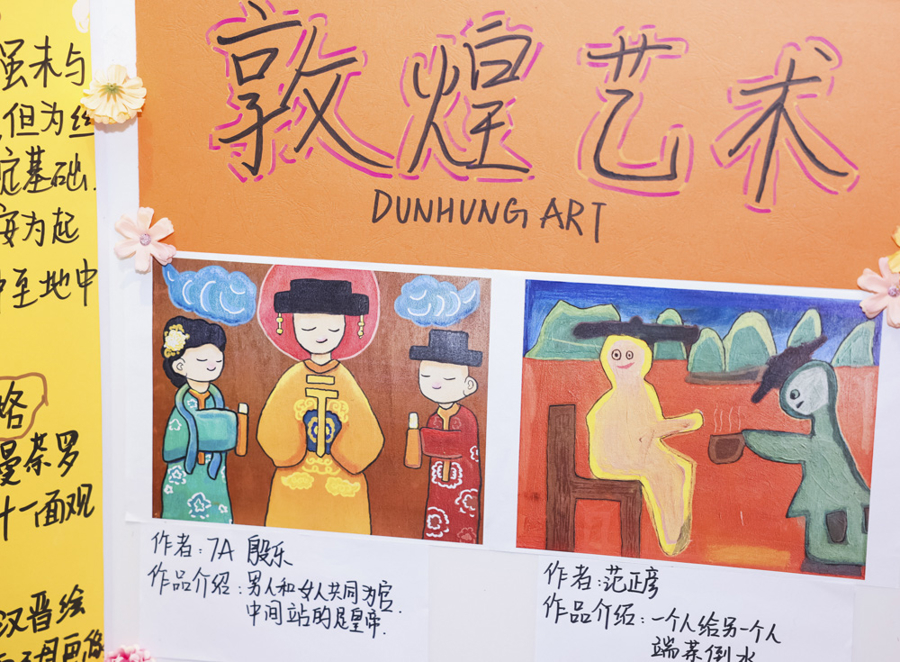 虽未与
但为丝
基础.
安为起
至地中
曼荼罗
十一面观
汉晋绘
敦煌艺术
DUNHUNG ART
作者：7A 殷乐
作品介绍：男人和女人共同为官.
中间站的是皇帝.
作者：范正彦
作品介绍：一个人给另一个人
端茶倒水